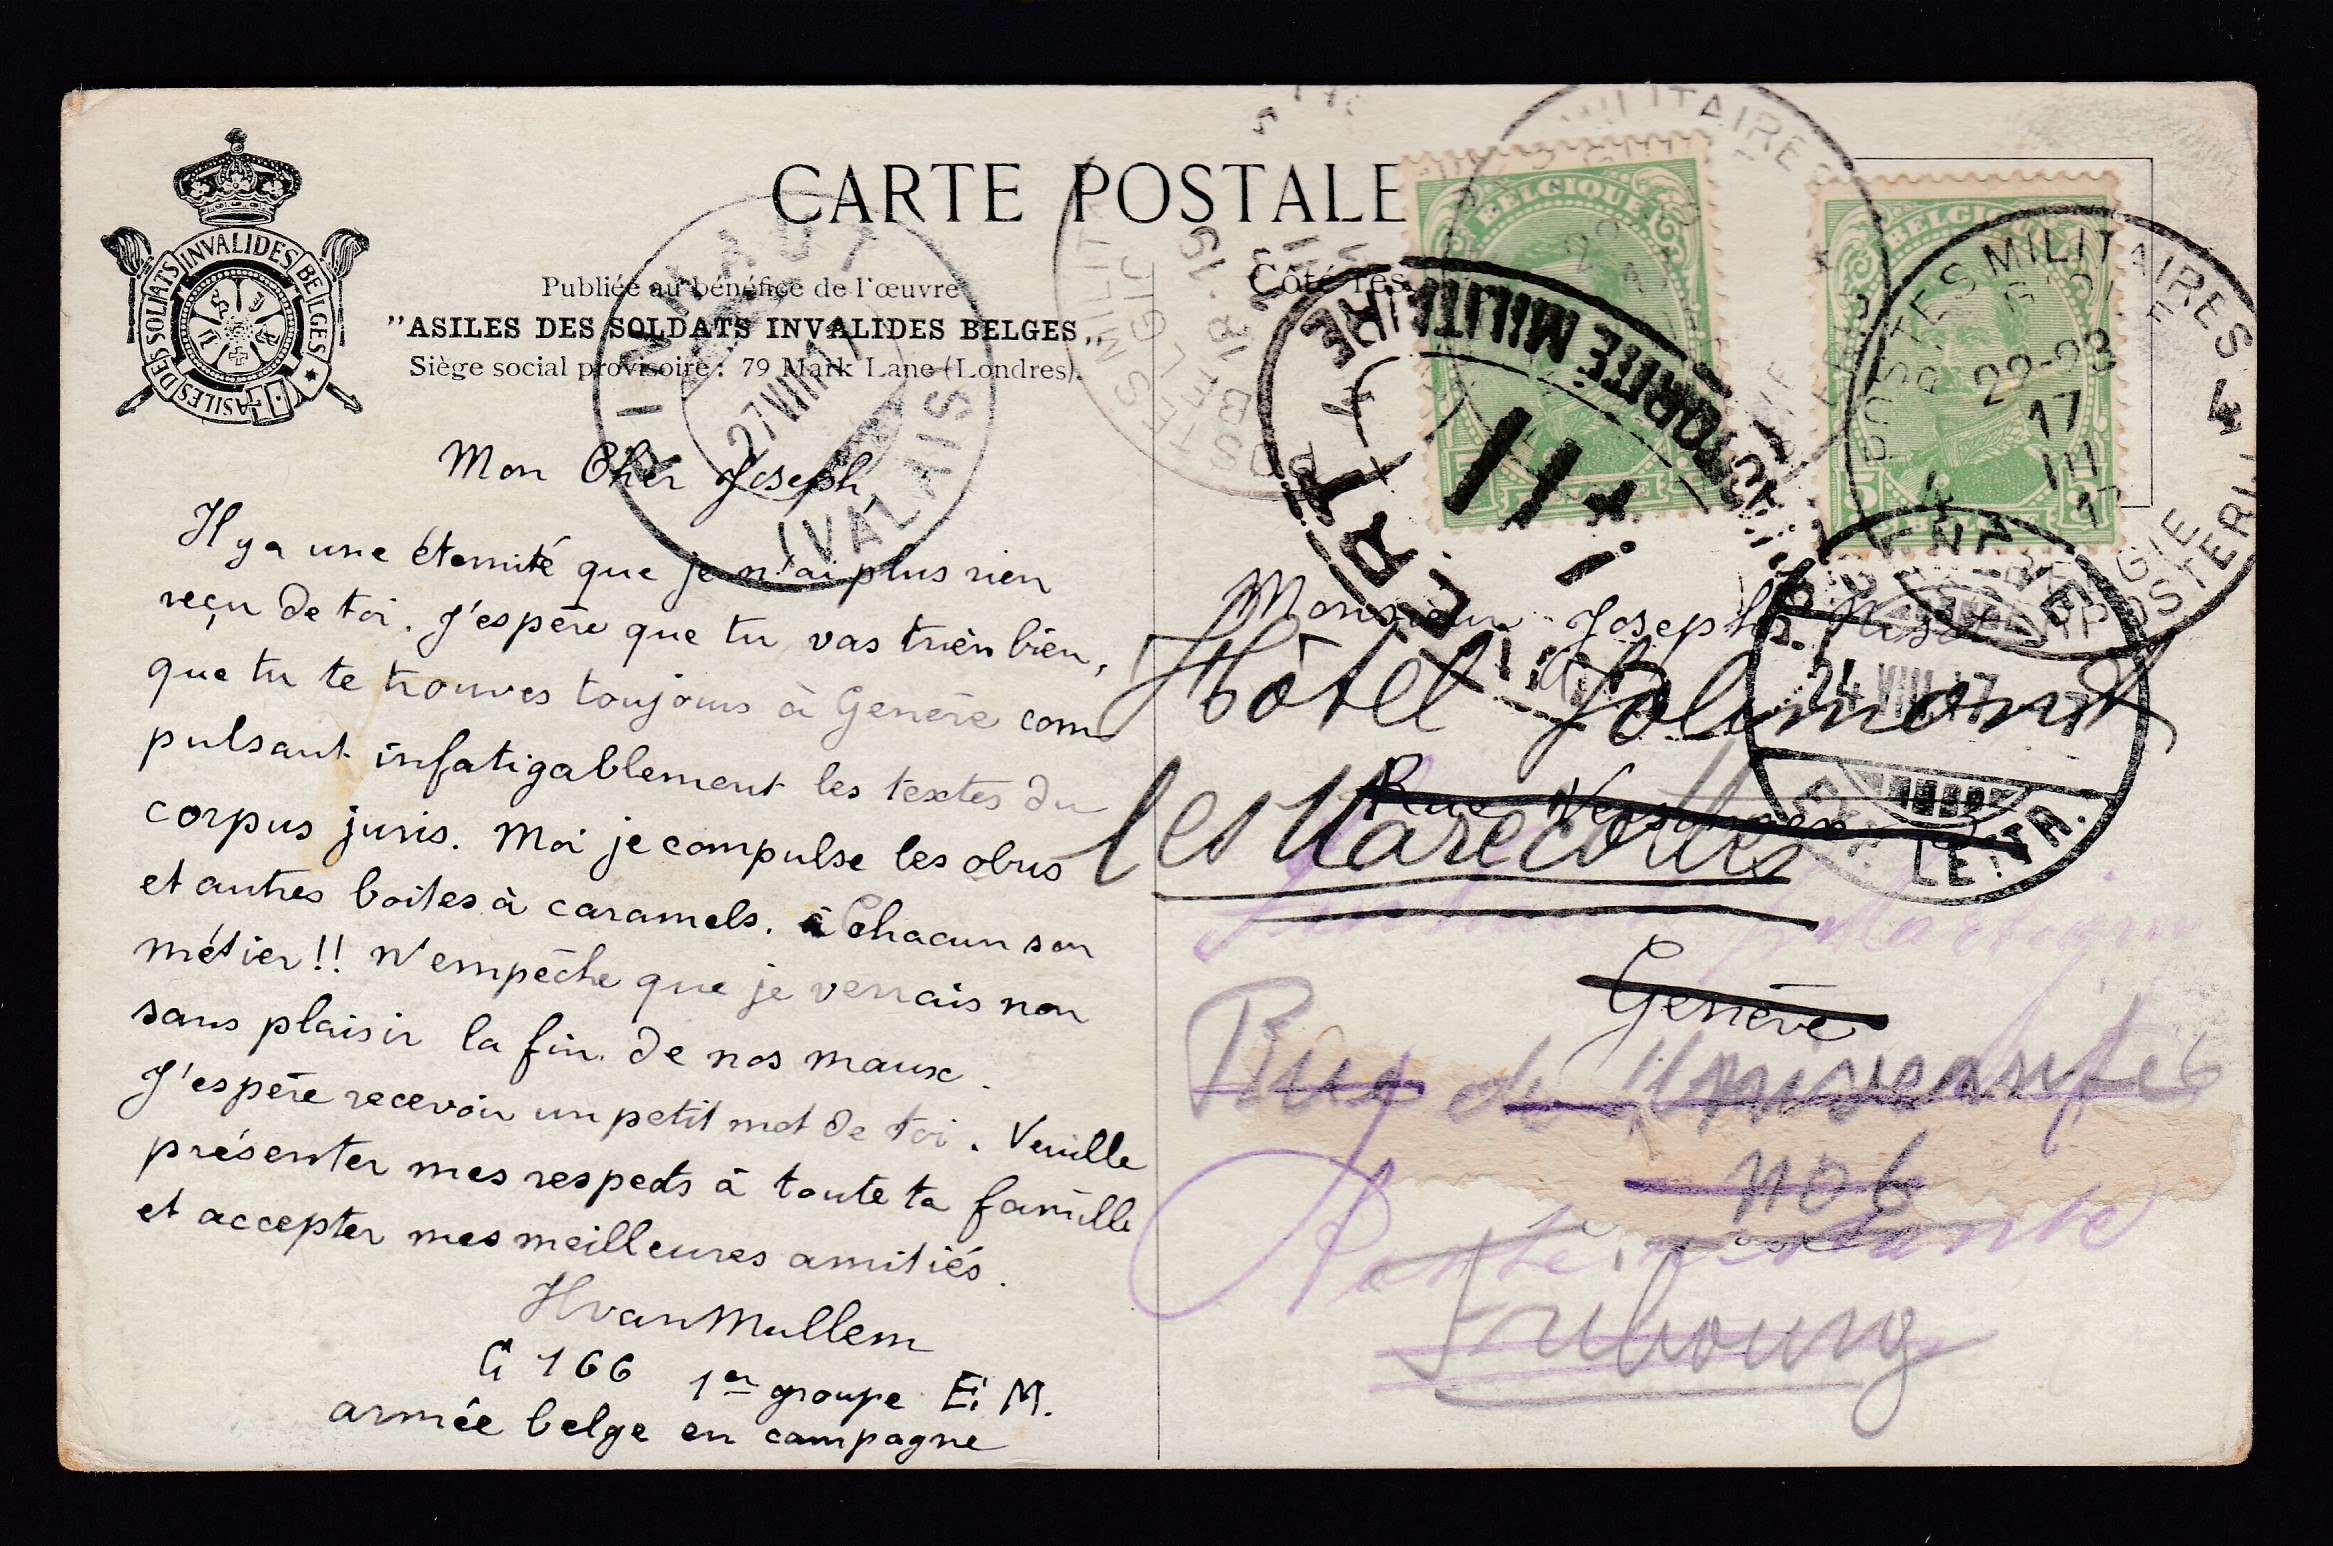 CARTE POSTALE
Publiée au bénéfice de l'œuvre
"ASILES DES SOLDATS INVALIDES BELGES"
Siège social provisoire : 79 Mark Lane (Londres).
ASILES DES SOLDATS INVALIDES BELGES
Mon Cher Joseph
Il y a une éternité que je n'ai plus rien
reçu de toi. J'espère que tu vas trièn bien,
que tu te trouves toujours à Genève com
pulsant infatigablement les textes du
corpus juris. Moi je compulse les obus
et autres boites à caramels. à Chacun son
métier!! N'empêche que je verrais non
sans plaisir la fin de nos maux.
J'espère recevoir un petit mot de toi. Veuille
présenter mes respects à toute ta famille
et accepter mes meilleures amitiés.
HvanMullem
G 166 1er groupe E. M.
armée belge en campagne
27 VIII 17
(VALAIS)
Côté rés
BELGIQUE
BELGIQUE
POSTES MILITAIRES 4
22-23
17
III
17
AUTORITÉ MILITAIRE
Monsieur Joseph
Hôtel Jolimont
les Marecottes
Rue
Genève
Rue de l'Université 6
no 6
Poste restante
Fribourg
24 VIII 17
LETTR.